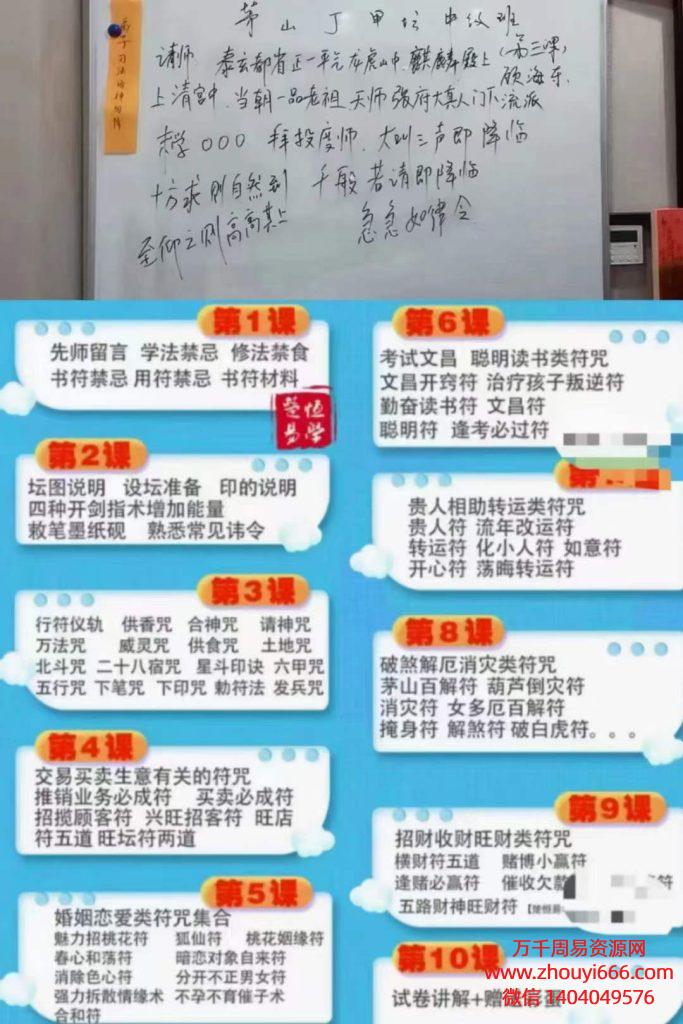 茅山丁甲坛中级班
(第三课)
顾海东
请师 泰玄都省正一平元龙虎山中.麒麟殿上
上清宫中.当朝一品老祖天师张府大真人门下流派
末学〇〇〇 拜投度师.大叫三声即降临
十方求则自然到 千般若请即降临
急急如律令
弟子习法的
第1课
先师留言 学法禁忌 修法禁食
书符禁忌 用符禁忌 书符材料
楚恒易学
第2课
坛图说明 设坛准备 印的说明
四种开剑指术增加能量
敕笔墨纸砚 熟悉常见讳令
第3课
行符仪轨 供香咒 合神咒 请神咒
万法咒 威灵咒 供食咒 土地咒
北斗咒 二十八宿咒 星斗印诀 六甲咒
五行咒 下笔咒 下印咒 勅符法 发兵咒
第4课
交易买卖生意有关的符咒
推销业务必成符 买卖必成符
招揽顾客符 兴旺招客符 旺店
符五道 旺坛符两道
第5课
婚姻恋爱类符咒集合
魅力招桃花符 狐仙符 桃花姻缘符
春心和荡符 暗恋对象自来符
消除色心符 分开不正男女符
强力拆散情缘术 不孕不育催子术
合和符
第6课
考试文昌 聪明读书类符咒
文昌开窍符 治疗孩子叛逆符
勤奋读书符 文昌符
聪明符 逢考必过符
贵人相助转运类符咒
贵人符 流年改运符
转运符 化小人符 如意符
开心符 荡晦转运符
第8课
破煞解厄消灾类符咒
茅山百解符 葫芦倒灾符
消灾符 女多厄百解符
掩身符 解煞符 破白虎符。。。
第9课
招财收财旺财类符咒
横财符五道 赌博小赢符
逢赌必赢符 催收欠款 符
五路财神旺财符
第10课
试卷讲解+赠
万千周易资源网
www.zhouyi666.com
微信 1404049576